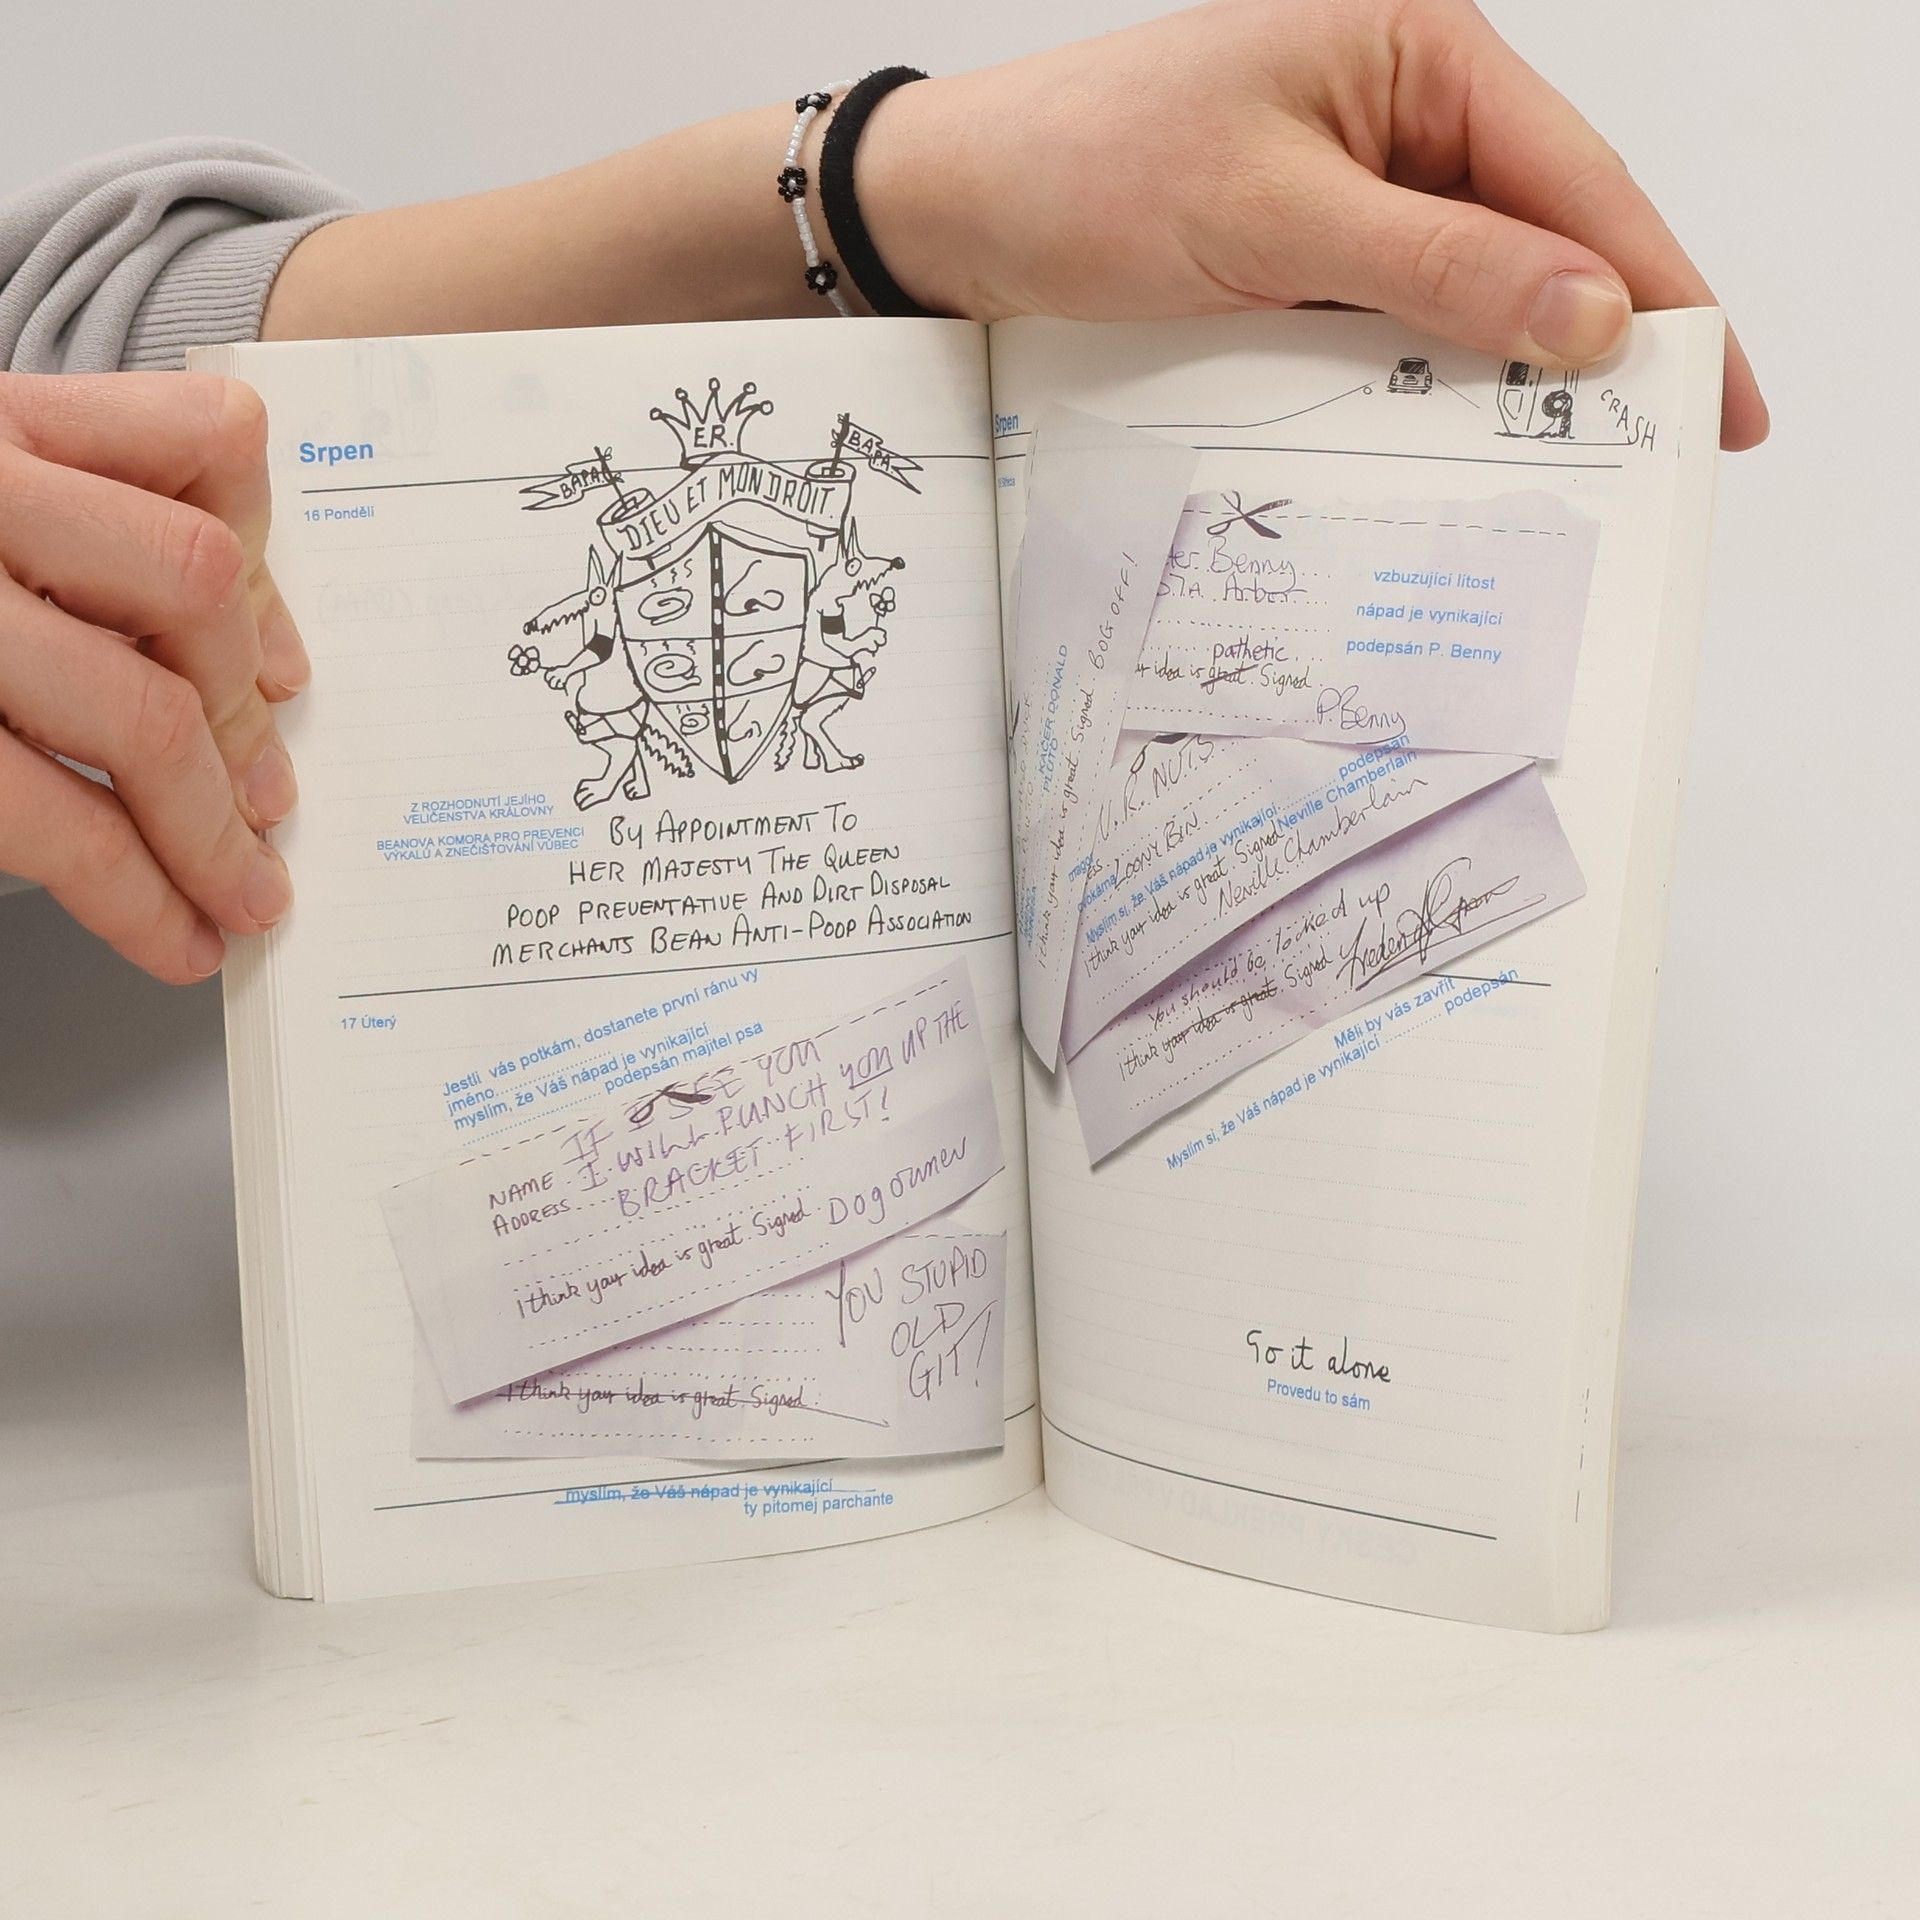 Srpen
16 Pondělí
ER.
B.A.P.A.
B.A.P.A.
DIEU ET MON DROIT.
Z ROZHODNUTÍ JEJÍHO
VELIČENSTVA KRÁLOVNY
BEANOVA KOMORA PRO PREVENCI
VÝKALŮ A ZNEČIŠTOVÁNÍ VŮBEC
BY APPOINTMENT TO
HER MAJESTY THE QUEEN
POOP PREVENTATIVE AND DIRT DISPOSAL
MERCHANTS BEAN ANTI-POOP ASSOCIATION
17 Úterý
Jestli vás potkám, dostanete první ránu vy
jméno
myslím, že Váš nápad je vynikající
podepsán majitel psa
IF I SEE YOU
NAME I WILL PUNCH YOU UP THE
ADDRESS BRACKET FIRST!
I think your idea is great. Signed Dog owner
YOU STUPID
OLD
GIT!
I think your idea is great. Signed
myslím, že Váš nápad je vynikající
ty pitomej parchante
Srpen
CRASH
Benny
pathetic
idea is great. Signed
P. Benny
vzbuzující lítost
nápad je vynikající
podepsán P. Benny
I think your idea is great. Signed BOG OFF!
KAČER DONALD
PLUTO
U. R. NUTS
LOONY BIN
podepsán
Myslím si, že Váš nápad je vynikající Neville Chamberlain
I think your idea is great. Signed
Neville Chamberlain
You should be locked up
I think your idea is great. Signed
Měli by vás zavřít
Myslím si, že Váš nápad je vynikající podepsán
Go it alone
Provedu to sám